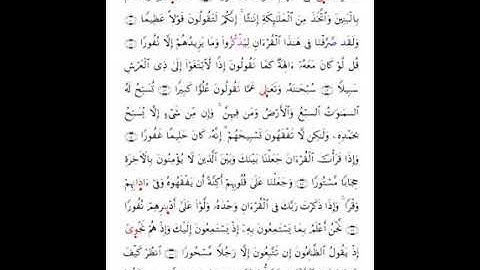 بِٱلْبَنِينَ وَٱتَّخَذَ مِنَ ٱلْمَلَٰٓئِكَةِ إِنَٰثًا ۚ إِنَّكُمْ لَتَقُولُونَ قَوْلًا عَظِيمًا
وَلَقَد صَّرَّفْنَا فِى هَٰذَا ٱلْقُرْءَانِ لِيَذْكُرُوا۟ وَمَا يَزِيدُهُمْ إِلَّا نُفُورًا
قُل لَّوْ كَانَ مَعَهُۥٓ ءَالِهَةٌ كَمَا تَقُولُونَ إِذًا لَّٱبْتَغَوْا۟ إِلَىٰ ذِى ٱلْعَرْشِ
سَبِيلًا سُبْحَٰنَهُۥ وَتَعَٰلَىٰ عَمَّا تَقُولُونَ عُلُوًّا كَبِيرًا تُسَبِّحُ لَهُ
ٱلسَّمَٰوَٰتُ ٱلسَّبْعُ وَٱلْأَرْضُ وَمَن فِيهِنَّ ۚ وَإِن مِّن شَىْءٍ إِلَّا يُسَبِّحُ
بِحَمْدِهِۦ وَلَٰكِن لَّا تَفْقَهُونَ تَسْبِيحَهُمْ ۗ إِنَّهُۥ كَانَ حَلِيمًا غَفُورًا
وَإِذَا قَرَأْتَ ٱلْقُرْءَانَ جَعَلْنَا بَيْنَكَ وَبَيْنَ ٱلَّذِينَ لَا يُؤْمِنُونَ بِٱلْءَاخِرَةِ
حِجَابًا مَّسْتُورًا وَجَعَلْنَا عَلَىٰ قُلُوبِهِمْ أَكِنَّةً أَن يَفْقَهُوهُ وَفِىٓ ءَاذَانِهِمْ
وَقْرًا ۚ وَإِذَا ذَكَرْتَ رَبَّكَ فِى ٱلْقُرْءَانِ وَحْدَهُۥ وَلَّوْا۟ عَلَىٰٓ أَدْبَٰرِهِمْ نُفُورًا
نَّحْنُ أَعْلَمُ بِمَا يَسْتَمِعُونَ بِهِۦٓ إِذْ يَسْتَمِعُونَ إِلَيْكَ وَإِذْ هُمْ نَجْوَىٰٓ
إِذْ يَقُولُ ٱلظَّٰلِمُونَ إِن تَتَّبِعُونَ إِلَّا رَجُلًا مَّسْحُورًا ٱنظُرْ كَيْفَ